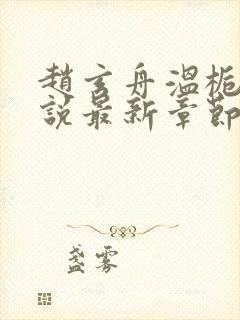 趙玄舟溫梔
說最新章節
盞霧